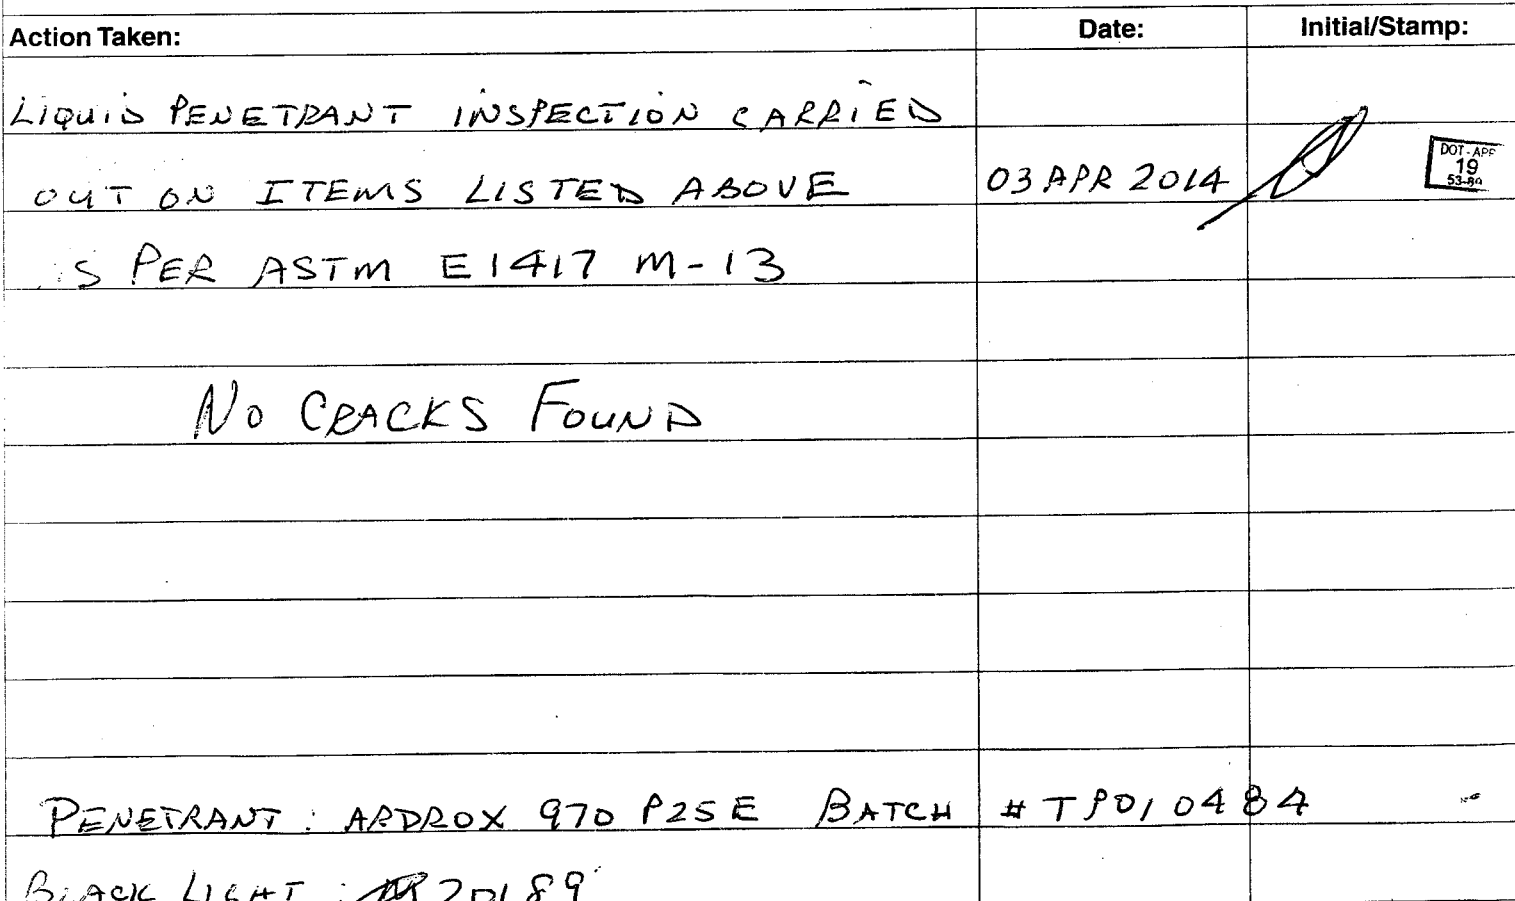 Action Taken: Date: Initial/Stamp:
LIQUID PENETRANT INSPECTION CARRIED
OUT ON ITEMS LISTED ABOVE 03 APR 2014
DOT-APP
19
53-89
S PER ASTM E1417 M-13
NO CRACKS FOUND
PENETRANT: ARDROX 970 P25E BATCH # TP010484
BLACK LIGHT: 20189